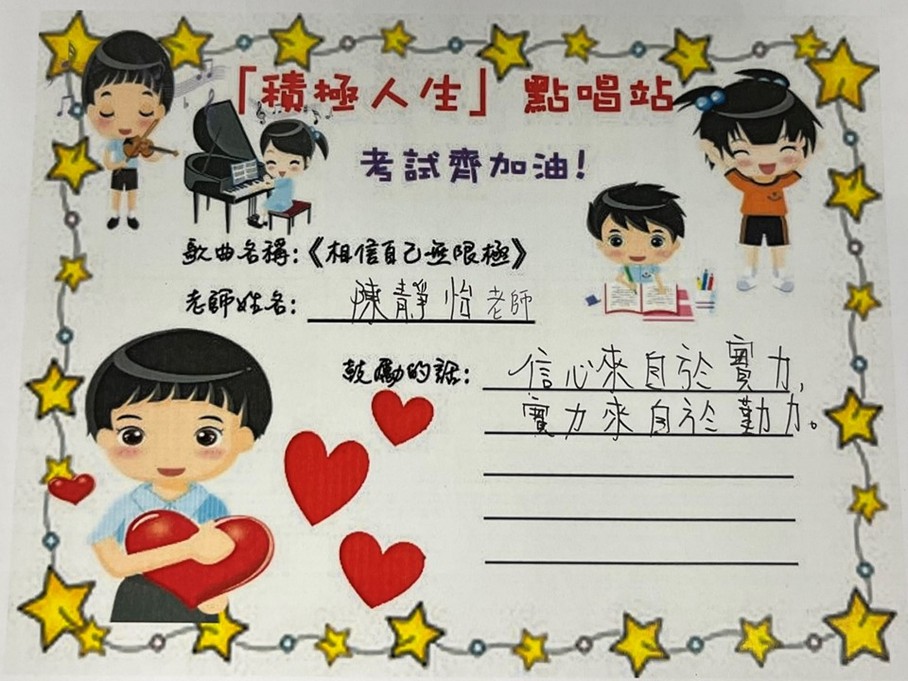 「積極人生」 點唱站
考試齊加油!
歌曲名稱:《相信自己無限極》
老師姓名: 陳靜怡老師
鼓勵的話: 信心來自於實力,
實力來自於勤力。